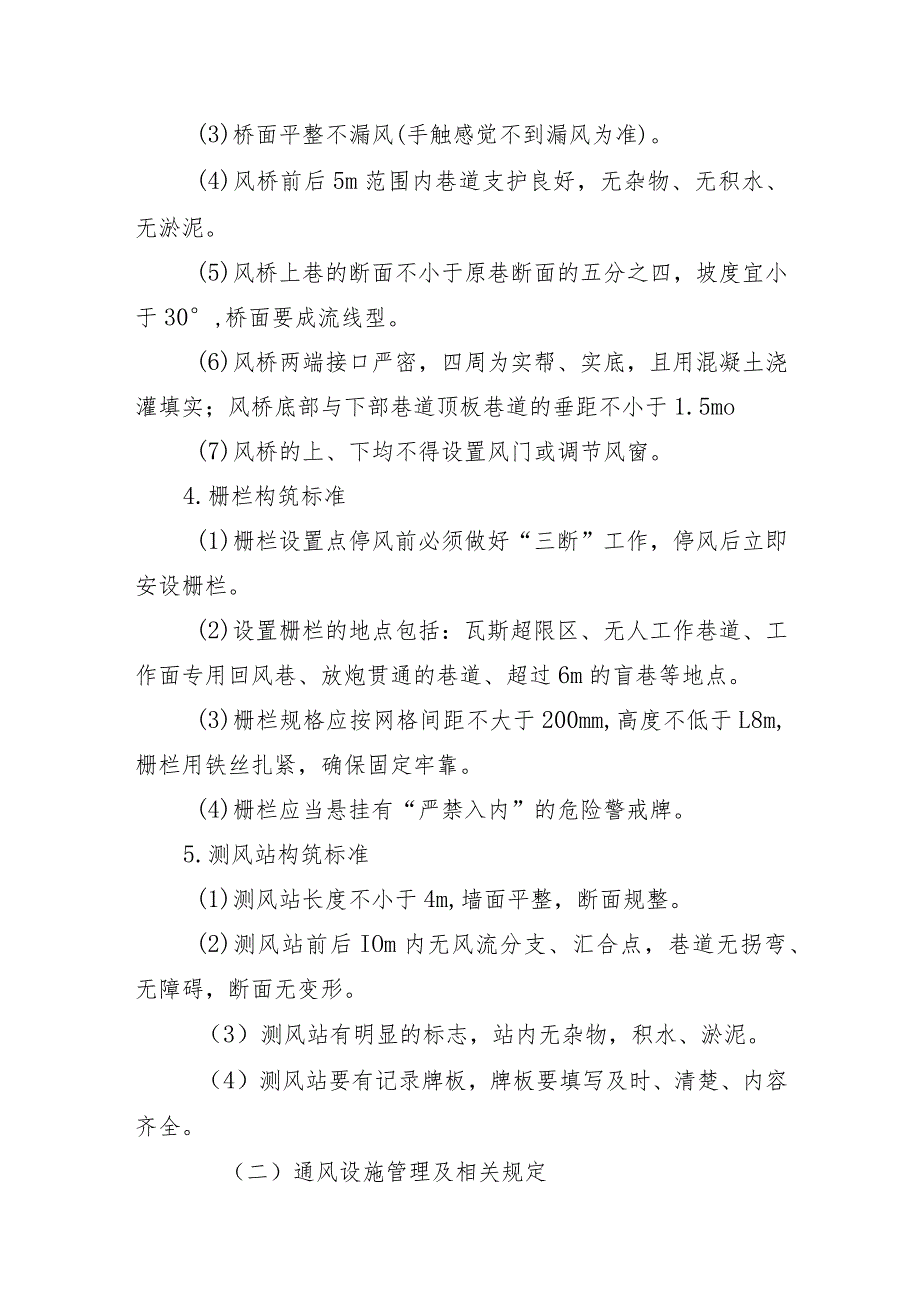 (3)桥面平整不漏风(手触感觉不到漏风为准)。
(4)风桥前后5m范围内巷道支护良好，无杂物、无积水、
无淤泥。
(5)风桥上巷的断面不小于原巷断面的五分之四，坡度宜小
于30°,桥面要成流线型。
(6)风桥两端接口严密，四周为实帮、实底，且用混凝土浇
灌填实；风桥底部与下部巷道顶板巷道的垂距不小于1.5mo
(7)风桥的上、下均不得设置风门或调节风窗。
4.栅栏构筑标准
(1)栅栏设置点停风前必须做好“三断”工作，停风后立即
安设栅栏。
(2)设置栅栏的地点包括：瓦斯超限区、无人工作巷道、工
作面专用回风巷、放炮贯通的巷道、超过6m的盲巷等地点。
(3)栅栏规格应按网格间距不大于200mm,高度不低于L8m,
栅栏用铁丝扎紧，确保固定牢靠。
(4)栅栏应当悬挂有“严禁入内”的危险警戒牌。
5.测风站构筑标准
(1)测风站长度不小于4m,墙面平整，断面规整。
(2)测风站前后IOm内无风流分支、汇合点，巷道无拐弯、
无障碍，断面无变形。
（3）测风站有明显的标志，站内无杂物，积水、淤泥。
（4）测风站要有记录牌板，牌板要填写及时、清楚、内容
齐全。
（二）通风设施管理及相关规定